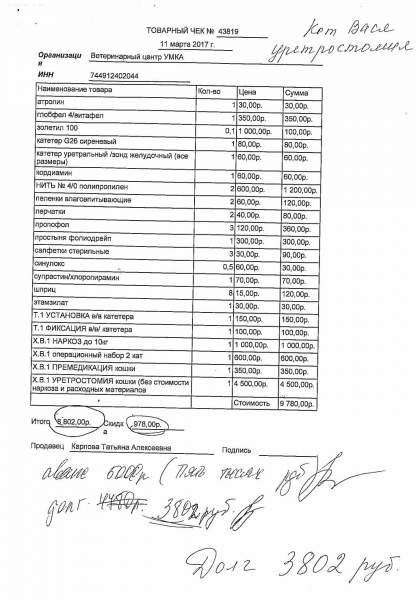 ТОВАРНЫЙ ЧЕК № 43819
Кот Вася
уретростомия
11 марта 2017 г.
Организаци
я
Ветеринарный центр УМКА
ИНН 744912402044
Наименование товара Кол-во Цена Сумма
атролин 1 30,00р. 30,00р.
глобфел 4/витафел 1 350,00р. 350,00р.
золетил 100 0,1 1 000,00р. 100,00р.
катетер G26 сиреневый 1 80,00р. 80,00р.
катетер уретральный /зонд желудочный (все
размеры) 1 60,00р. 60,00р.
кордиамин 1 60,00р. 60,00р.
НИТЬ № 4/0 полипропилен 2 600,00р. 1 200,00р.
пеленки влаговпитывающие 2 60,00р. 120,00р.
перчатки 2 40,00р. 80,00р.
пропофол 3 120,00р. 360,00р.
простыня фолиодрейп 1 300,00р. 300,00р.
салфетки стерильные 3 30,00р. 90,00р.
синулокс 0,5 60,00р. 30,00р.
супрастин/хлоропирамин 1 70,00р. 70,00р.
шприц 8 15,00р. 120,00р.
этамзилат 1 30,00р. 30,00р.
Т.1 УСТАНОВКА в/в катетера 1 150,00р. 150,00р.
Т.1 ФИКСАЦИЯ в/в/ катетера 1 100,00р. 100,00р.
Х.В.1 НАРКОЗ до 10кг 1 1 000,00р. 1 000,00р.
Х.В.1 операционный набор 2 кат 1 600,00р. 600,00р.
Х.В.1 ПРЕМЕДИКАЦИЯ кошки 1 350,00р. 350,00р.
Х.В.1 УРЕТРОСТОМИЯ кошки (без стоимости
наркоза и расходных материалов 1 4 500,00р. 4 500,00р.
Стоимость 9 780,00р.
Итого 8 802,00р. Скидк
а
978,00р.
Продавец Карпова Татьяна Алексеевна Подпись
аванс 5000р (Пять тысяч руб
долг. 3802 руб.
Долг 3802 руб.